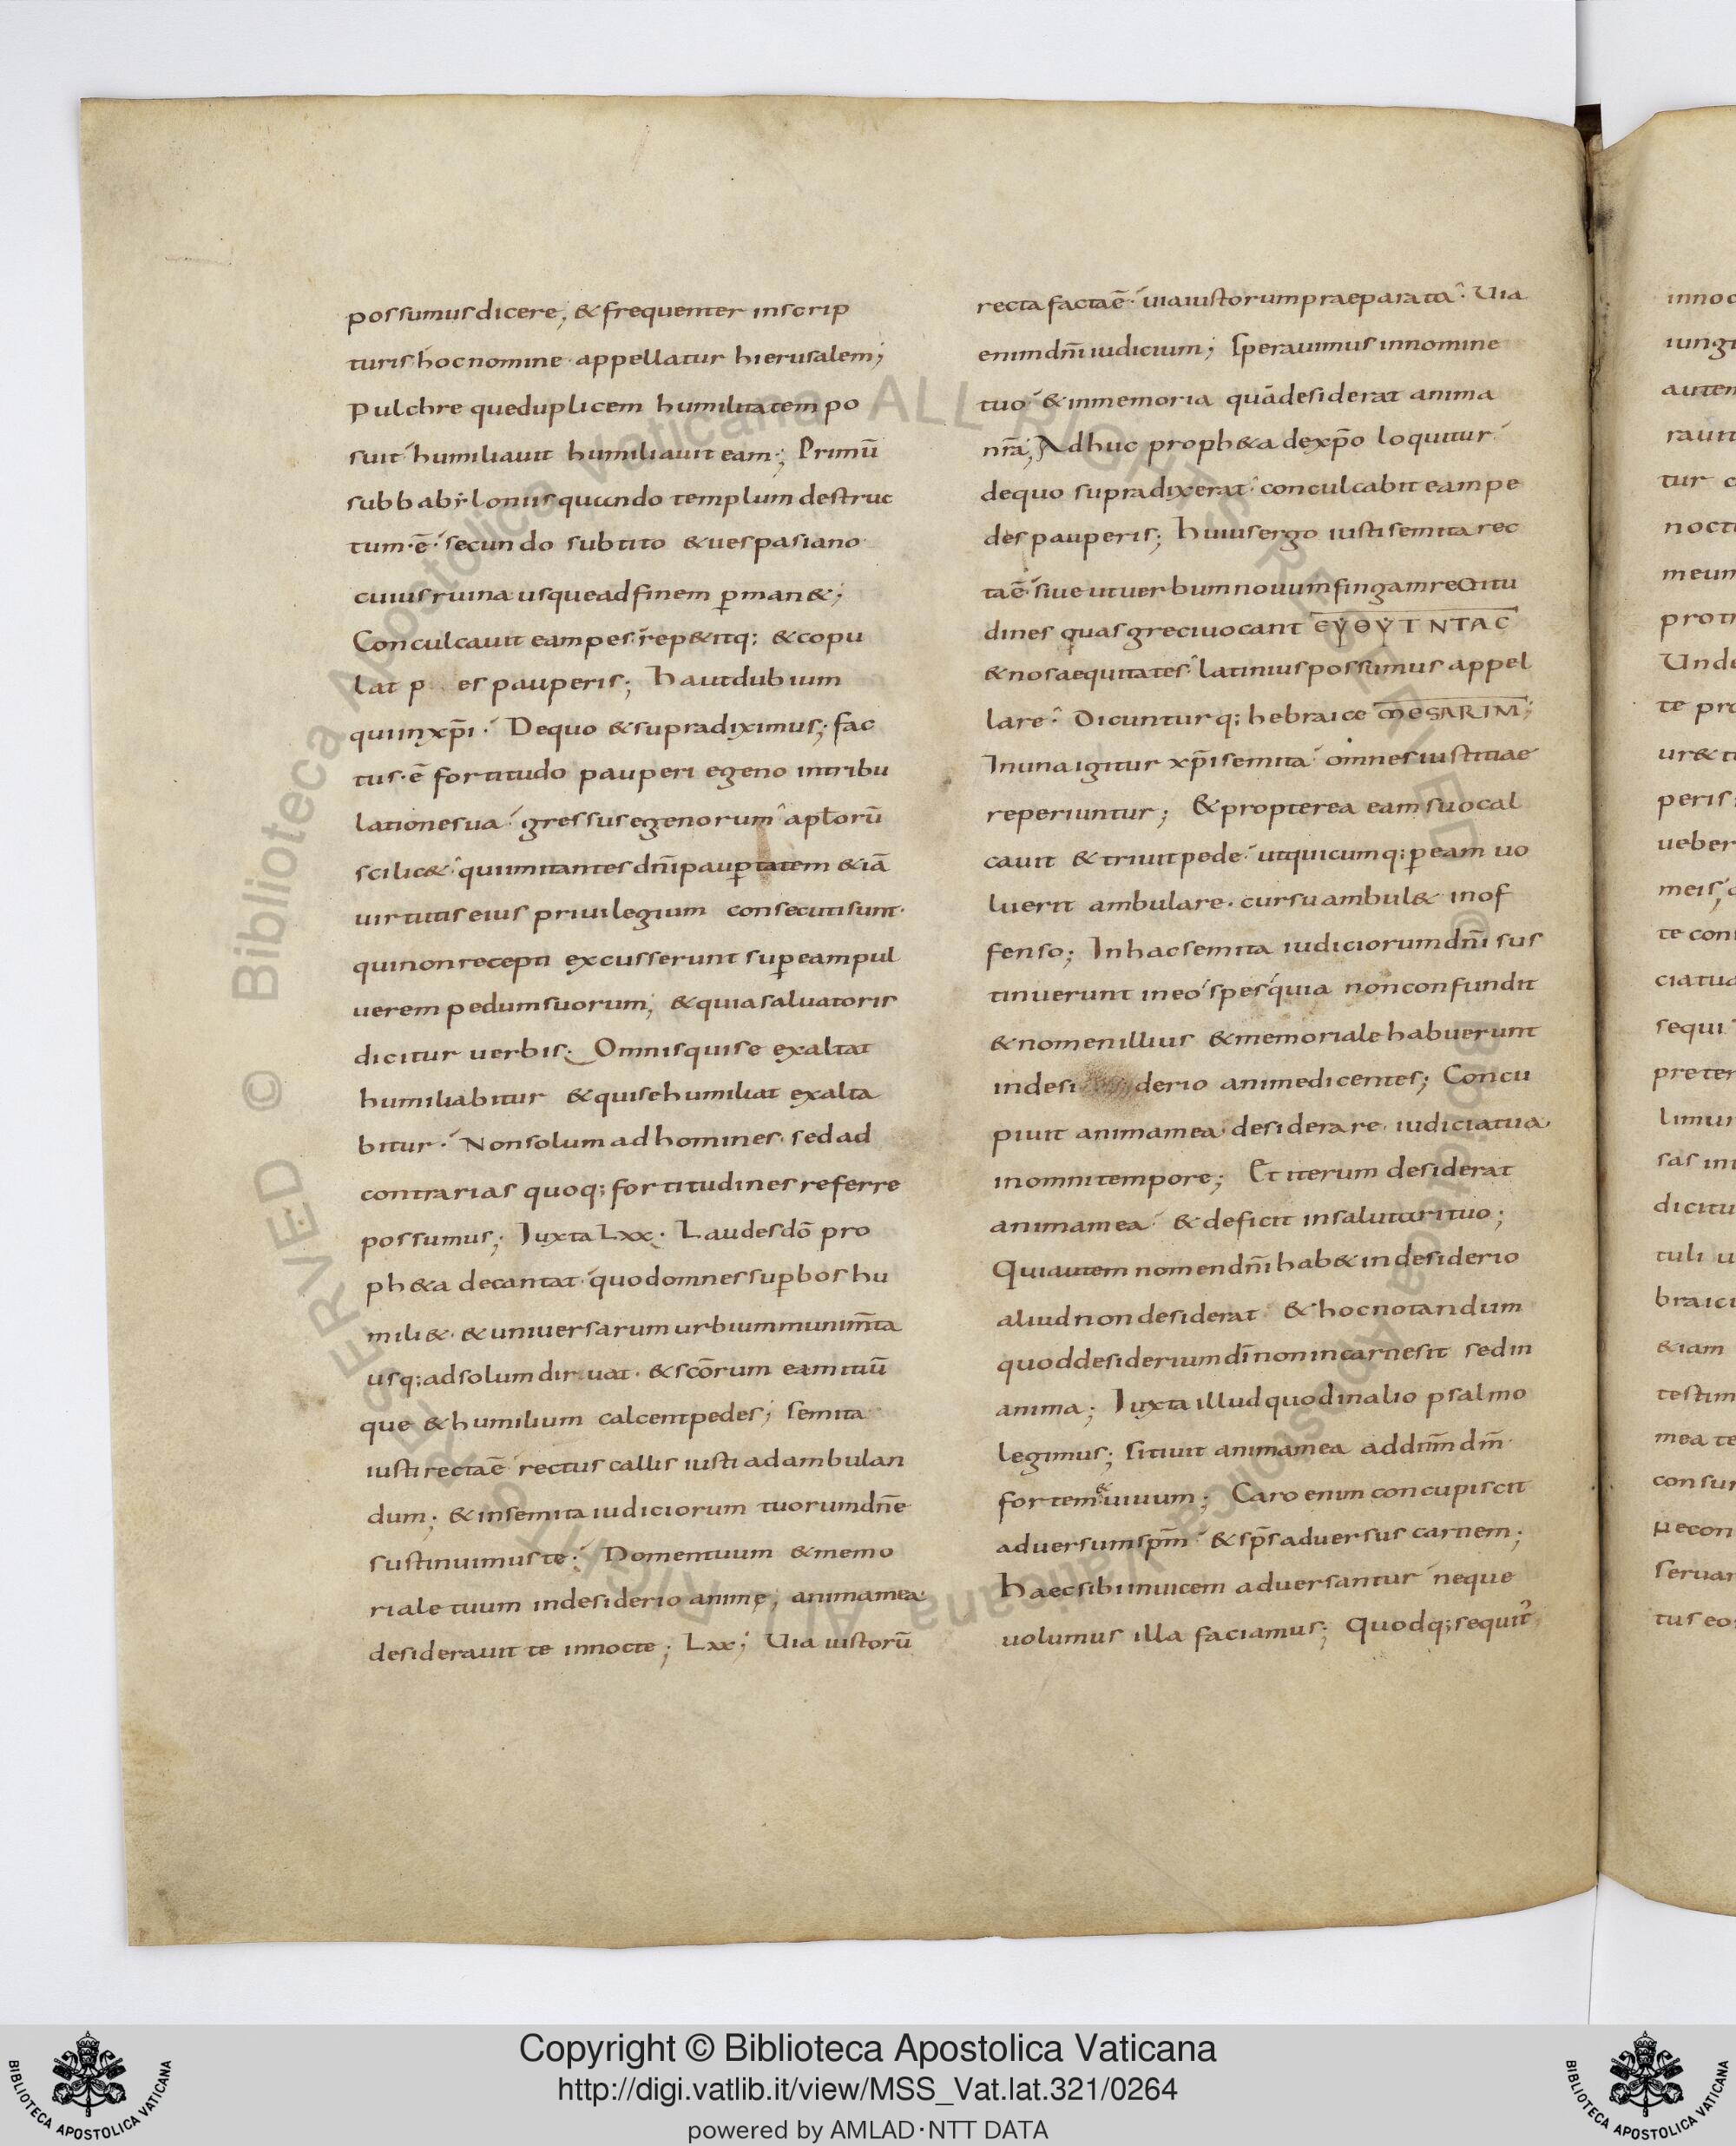 possumus dicere; & frequenter in scrip
turis hoc nomine appellatur hierusalem;
Pulchre que duplicem humilitatem po
suit humiliauit humiliauit eam; Primū
sub babyloniis quando templum destruc
tum ē secundo sub tito & uespasiano
cuius ruina usque ad finem ꝑman&;
Conculcauit eam pes rep&itq; & copu
lat p es pauperis; haut dubium
quin xp̄i. De quo & supra diximus; fac
tus ē fortitudo pauperi egeno in tribu
latione sua gressus egenorum apl̄orū
scilic& qui imitantes dn̄i pauꝑtatem &iā
uirtutis eius priuilegium consecuti sunt
qui non recepti excusserunt suꝑ eam pul
uerem pedum suorum; & quia saluatoris
dicitur uerbis. Omnis qui se exaltat
humiliabitur & qui se humiliat exalta
bitur. Non solum ad homines sed ad
contrarias quoq; fortitudines referre
possumus; Iuxta Lxx. Laudes dō pro
ph&a decantat quod omnes suꝑbos hu
mili& & uniuersarum urbium munim̄ta
usq; ad solum diruat & scōrum eam ituū
que & humilium calcent pedes; semita
iusti recta ē rectus callis iusti ad ambulan
dum; & in semita iudiciorum tuorum dn̄e
sustinuimus te; Nomen tuum & memo
riale tuum in desiderio animę; anima mea
desiderauit te in nocte; Lxx; Uia iustorū
recta facta ē uia iustorum praeparata. Uia
enim dn̄i iudicium; sperauimus in nomine
tuo & in memoria quā desiderat anima
nr̄a; Adhuc proph&a de xp̄o loquitur
de quo supra dixerat conculcabit eam pe
des pauperis; huius ergo iusti semita rec
ta ē siue ut uerbum nouum fingam rectitu
dines quas greci uocant ЄΥΘΥΤΝΤΑС
& nos aequitates latinius possumus appel
lare. Dicuntur q; hebraice MESARIM;
In una igitur xp̄i semita omnes iustitiae
reperiuntur; & propterea eam suo cal
cauit & triuit pede ut quicumq; ꝑ eam uo
luerit ambulare cursu ambul& inof
fenso; In hac semita iudiciorum dn̄i sus
tinuerunt in eo spes quia non confundit
& nomen illius & memoriale habuerunt
in desi derio anime dicentes; Concu
piuit anima mea desiderare iudicia tua
in omni tempore; Et iterum desiderat
anima mea & deficit in salutari tuo;
Qui autem nomen dn̄i hab& in desiderio
aliud non desiderat & hoc notandum
quod desiderium dī non in carne sit sed in
anima; Iuxta illud quod in alio psalmo
legimus; sitiuit anima mea ad dm̄ dm̄
fortem & uiuum; Caro enim concupiscit
aduersum spm̄ & sp̄s aduersus carnem;
haec sibi inuicem aduersantur ne que
uolumus illa faciamus; Quodq; sequit᷑
innoc
iungi
autem
rauit
tur
nocte
meum
prot
Unde
te pro
ur& t
peris
ueber
meis;
te con
ciatua
sequi
preter
limur
sas in
dicitu
tuli u
braici
&iam
testim
mea te
consur
econ
seruar
tus eo
Copyright © Biblioteca Apostolica Vaticana
http://digi.vatlib.it/view/MSS_Vat.lat.321/0264
powered by AMLAD·NTT DATA
BIBLIOTECA APOSTOLICA VATICANA
BIBLIOTECA APOSTOLICA VATICANA
© Biblioteca Apostolica Vaticana ALL RIGHTS RESERVED © Biblioteca Apostolica Vaticana ALL RIGHTS RESERVED